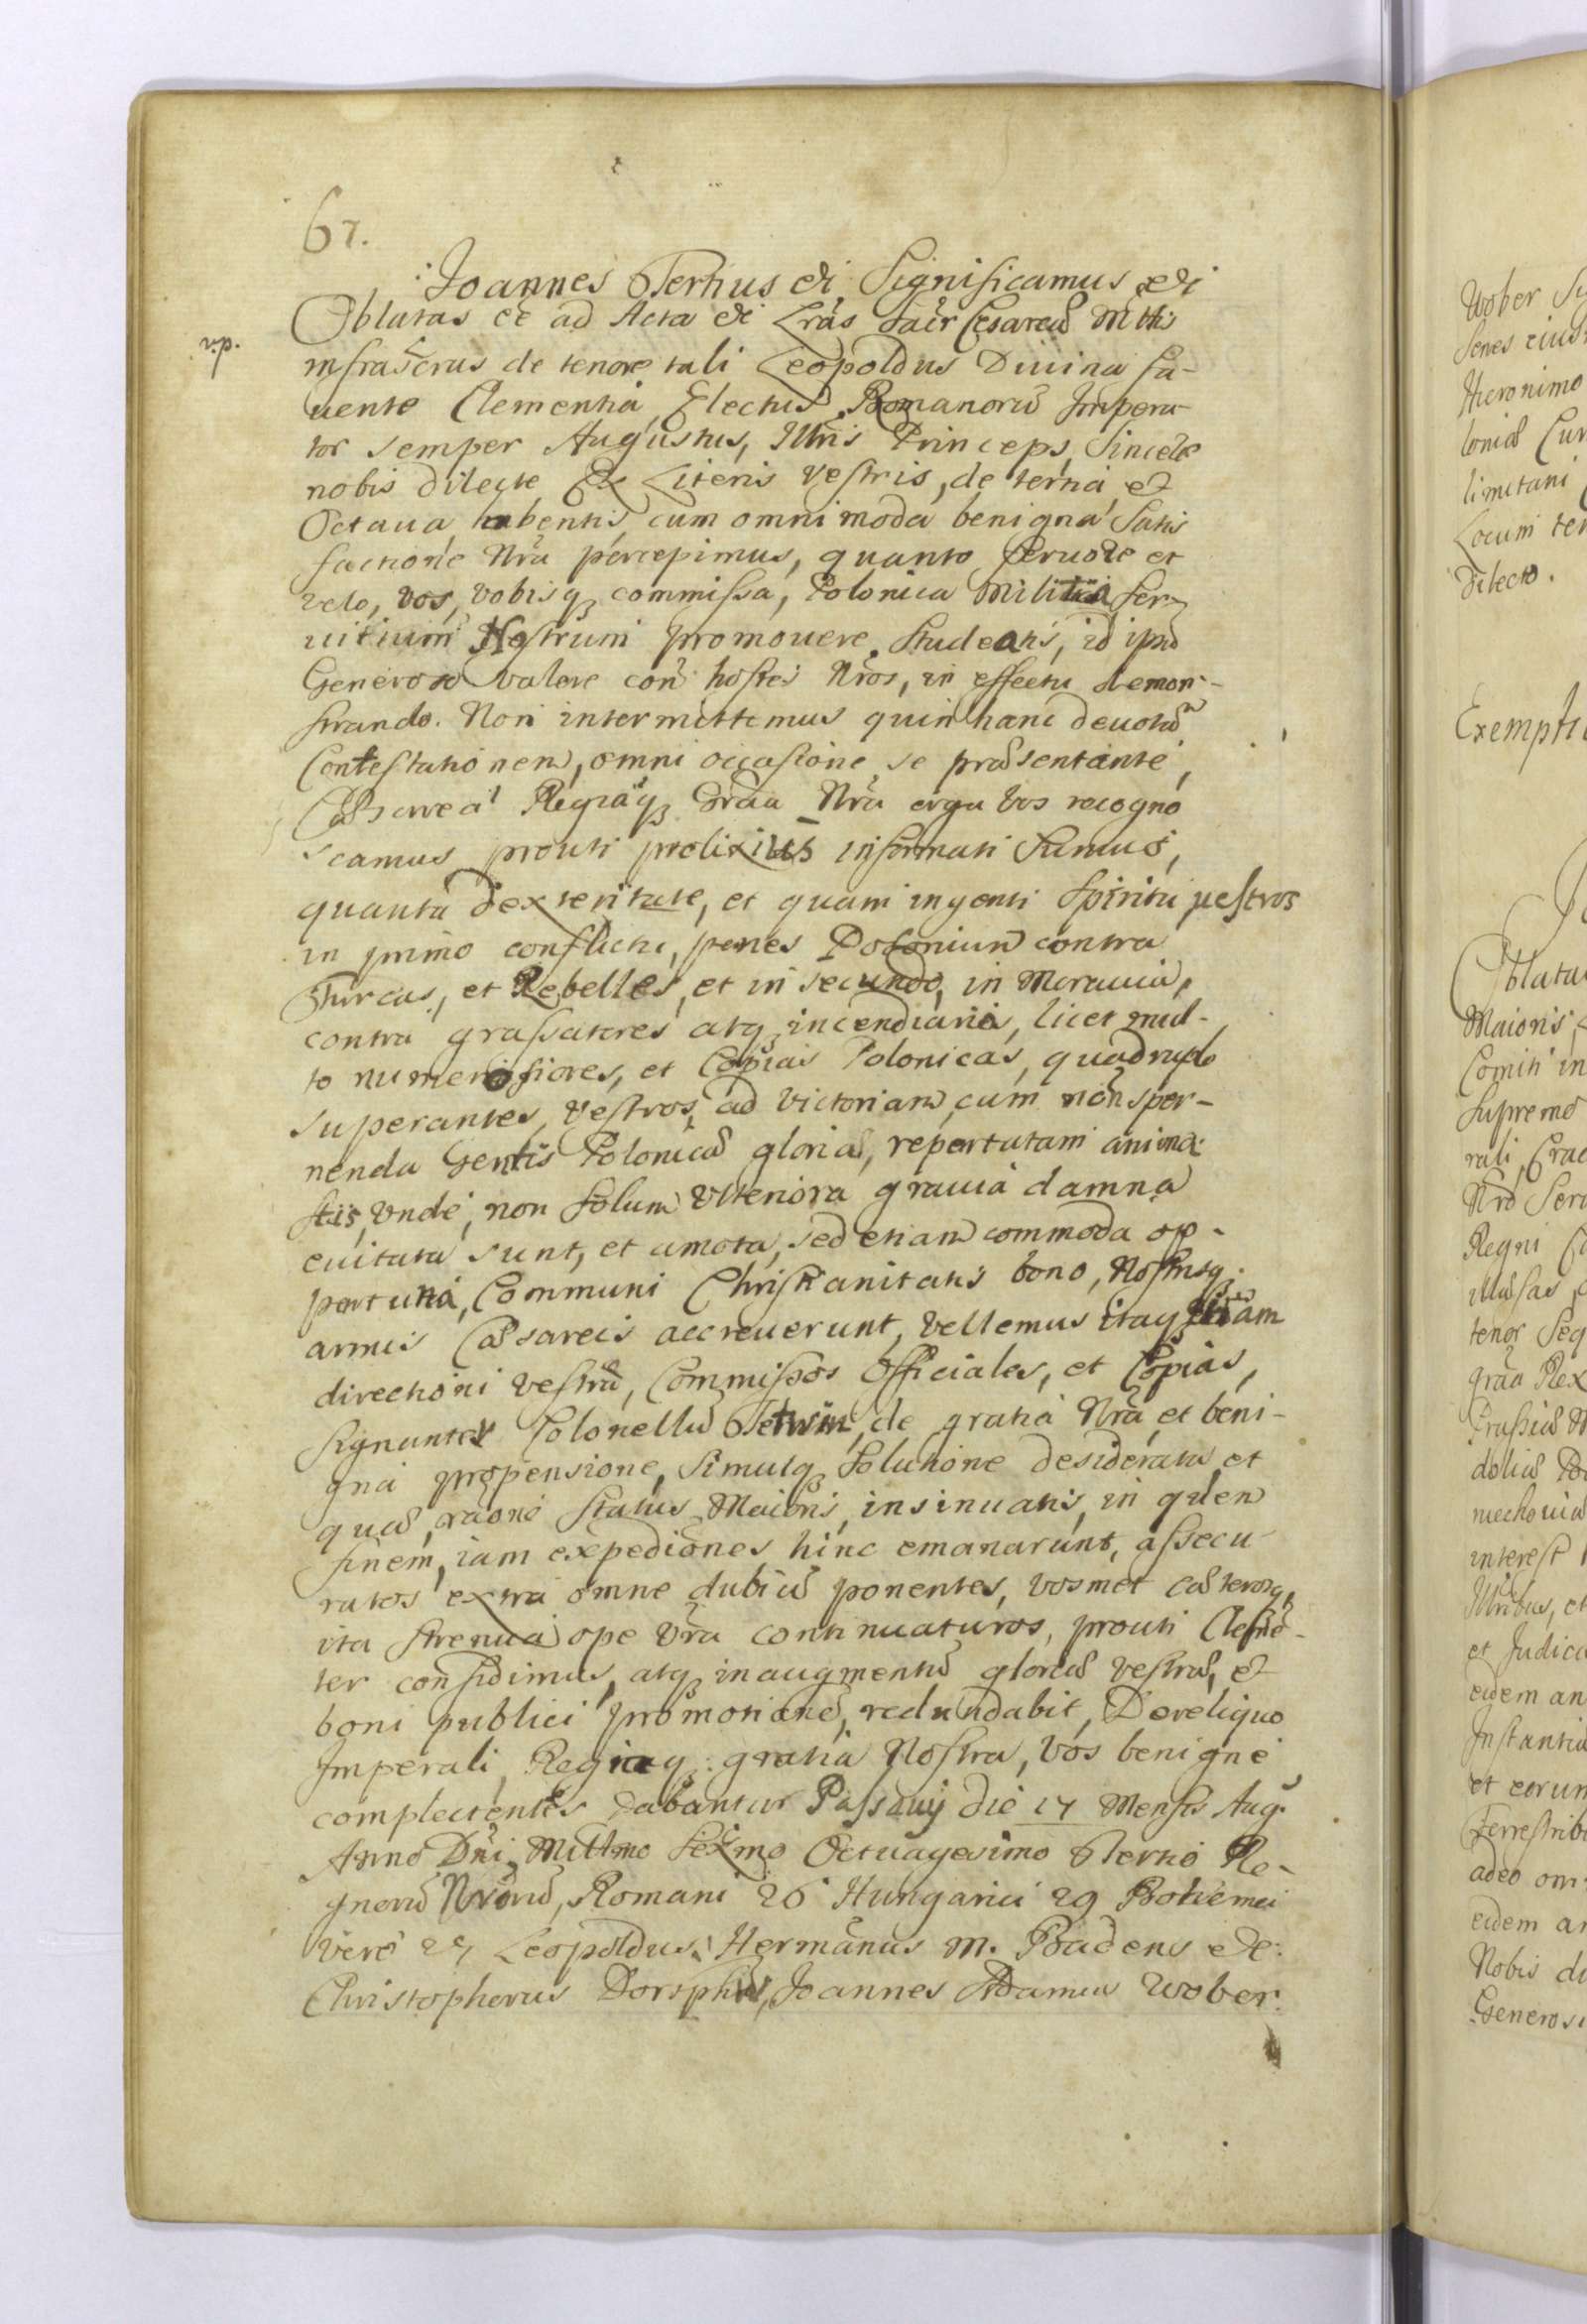 67.
Joannes Tertius &c Significamus &c
Oblatas ee ad Acta &c Lrãs Sacr Cesareæ Mttis
infrascrus de tenore tali Leopoldus Diuina fa-
uente Clementia, Electus Romanorũ Impera-
tor semper Augustus, Illris Princeps, Sincere
nobis dilecte Ex Literis Vestris, de terna et
Octaua, habentis, cum omnimoda benigna Satis
factione Nra percepimus, quanto feruore et
zelo, vos, vobisq commissa, Polonica Militia Ser-
uitium Nostrum promouere Studeatis, id ipsũ
Generoso valore con hostes Nros, in effectu demon-
strando. Non intermittemus quin hanc deuotã
Contestationem, omni occasione se præsentante,
Cæsarea Regiaq Graa Nra erga vos recogno
scamus prouti prolixius informati Sumus,
quanta dexteritate, et quam ingenti Spiritu vestros
in primo conflictu, penes Posonium contra
Turcas, et Rebelles, et in secundo, in Morauia,
contra grassatores atq incendiarios, licet mul-
to numerosiores, et Copias Polonicas, quadruplo
superantes, vestros, ad victoriam, cum non sper-
nenda Gentis Polonicæ gloria, reportatam anima
stis, vnde, non solum vlteriora grauia damna
euitata sunt, et amota, sed etiam commoda op-
portuna, Communi Christianitatis bono, Nostrisq
armis Cæsareis accreuerunt, Vellemus itaq etiam
directioni vestræ, Commissos Officiales, et Copias,
Signanter Colonellũ Tetwin, de gratia Nra, et beni-
gna propensione, simulq Solutione desiderata, et
quæ, raone Status Maioris, insinuatis, in quem
finem, iam expediones, hinc emanarunt, assecu-
ratos extra omne dubiũ ponentes, vosmet cæterosq,
ita strenua ope Vra continuaturos, prouti Cleme-
ter confidimus, atq in augmentũ gloriæ vestræ, et
boni publici promotionẽ, redundabit, De reliquo
Imperali, Regiaq gratia Nostra, Vos benigne
complectentes Dabantur Passauij die 17 Mensis Aug.
Anno Dni Millmo Sexmo Octuagesimo Tertio Re-
gnorũ Nrorũ, Romani 26 Hungarici 29 Bohemici
vero 27 Leopoldus. Hermanus M. Badens &c:
Christopherus Joannes Adamus Wober.